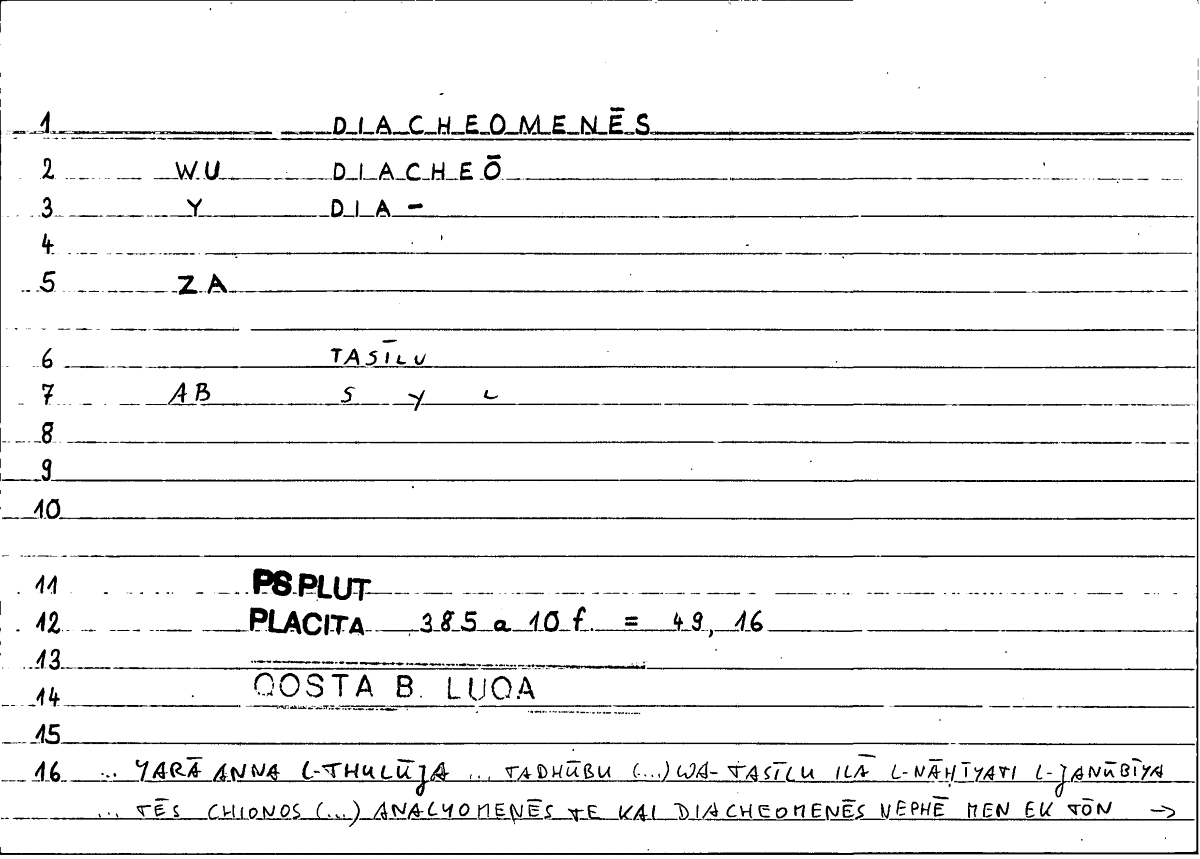 1 DIACHEOMENĒS
2 WU DIACHEŌ
3 Y DIA-
4
5 ZA
6 TASĪLU
7 AB S Y L
8
9
10
11 PS.PLUT
12 PLACITA 385 a 10 f. = 49, 16
13
14 QOSTA B. LUQA
15
16 ... YARĀ ANNA L-THULŪJA ... TADHŪBU (...) WA-TASĪLU ILĀ L-NĀḤIYATI L-JANŪBĪYA
... TĒS CHIONOS (...) ANALYOMENĒS TE KAI DIACHEOMENĒS NEPHĒ MEN EK TŌN →